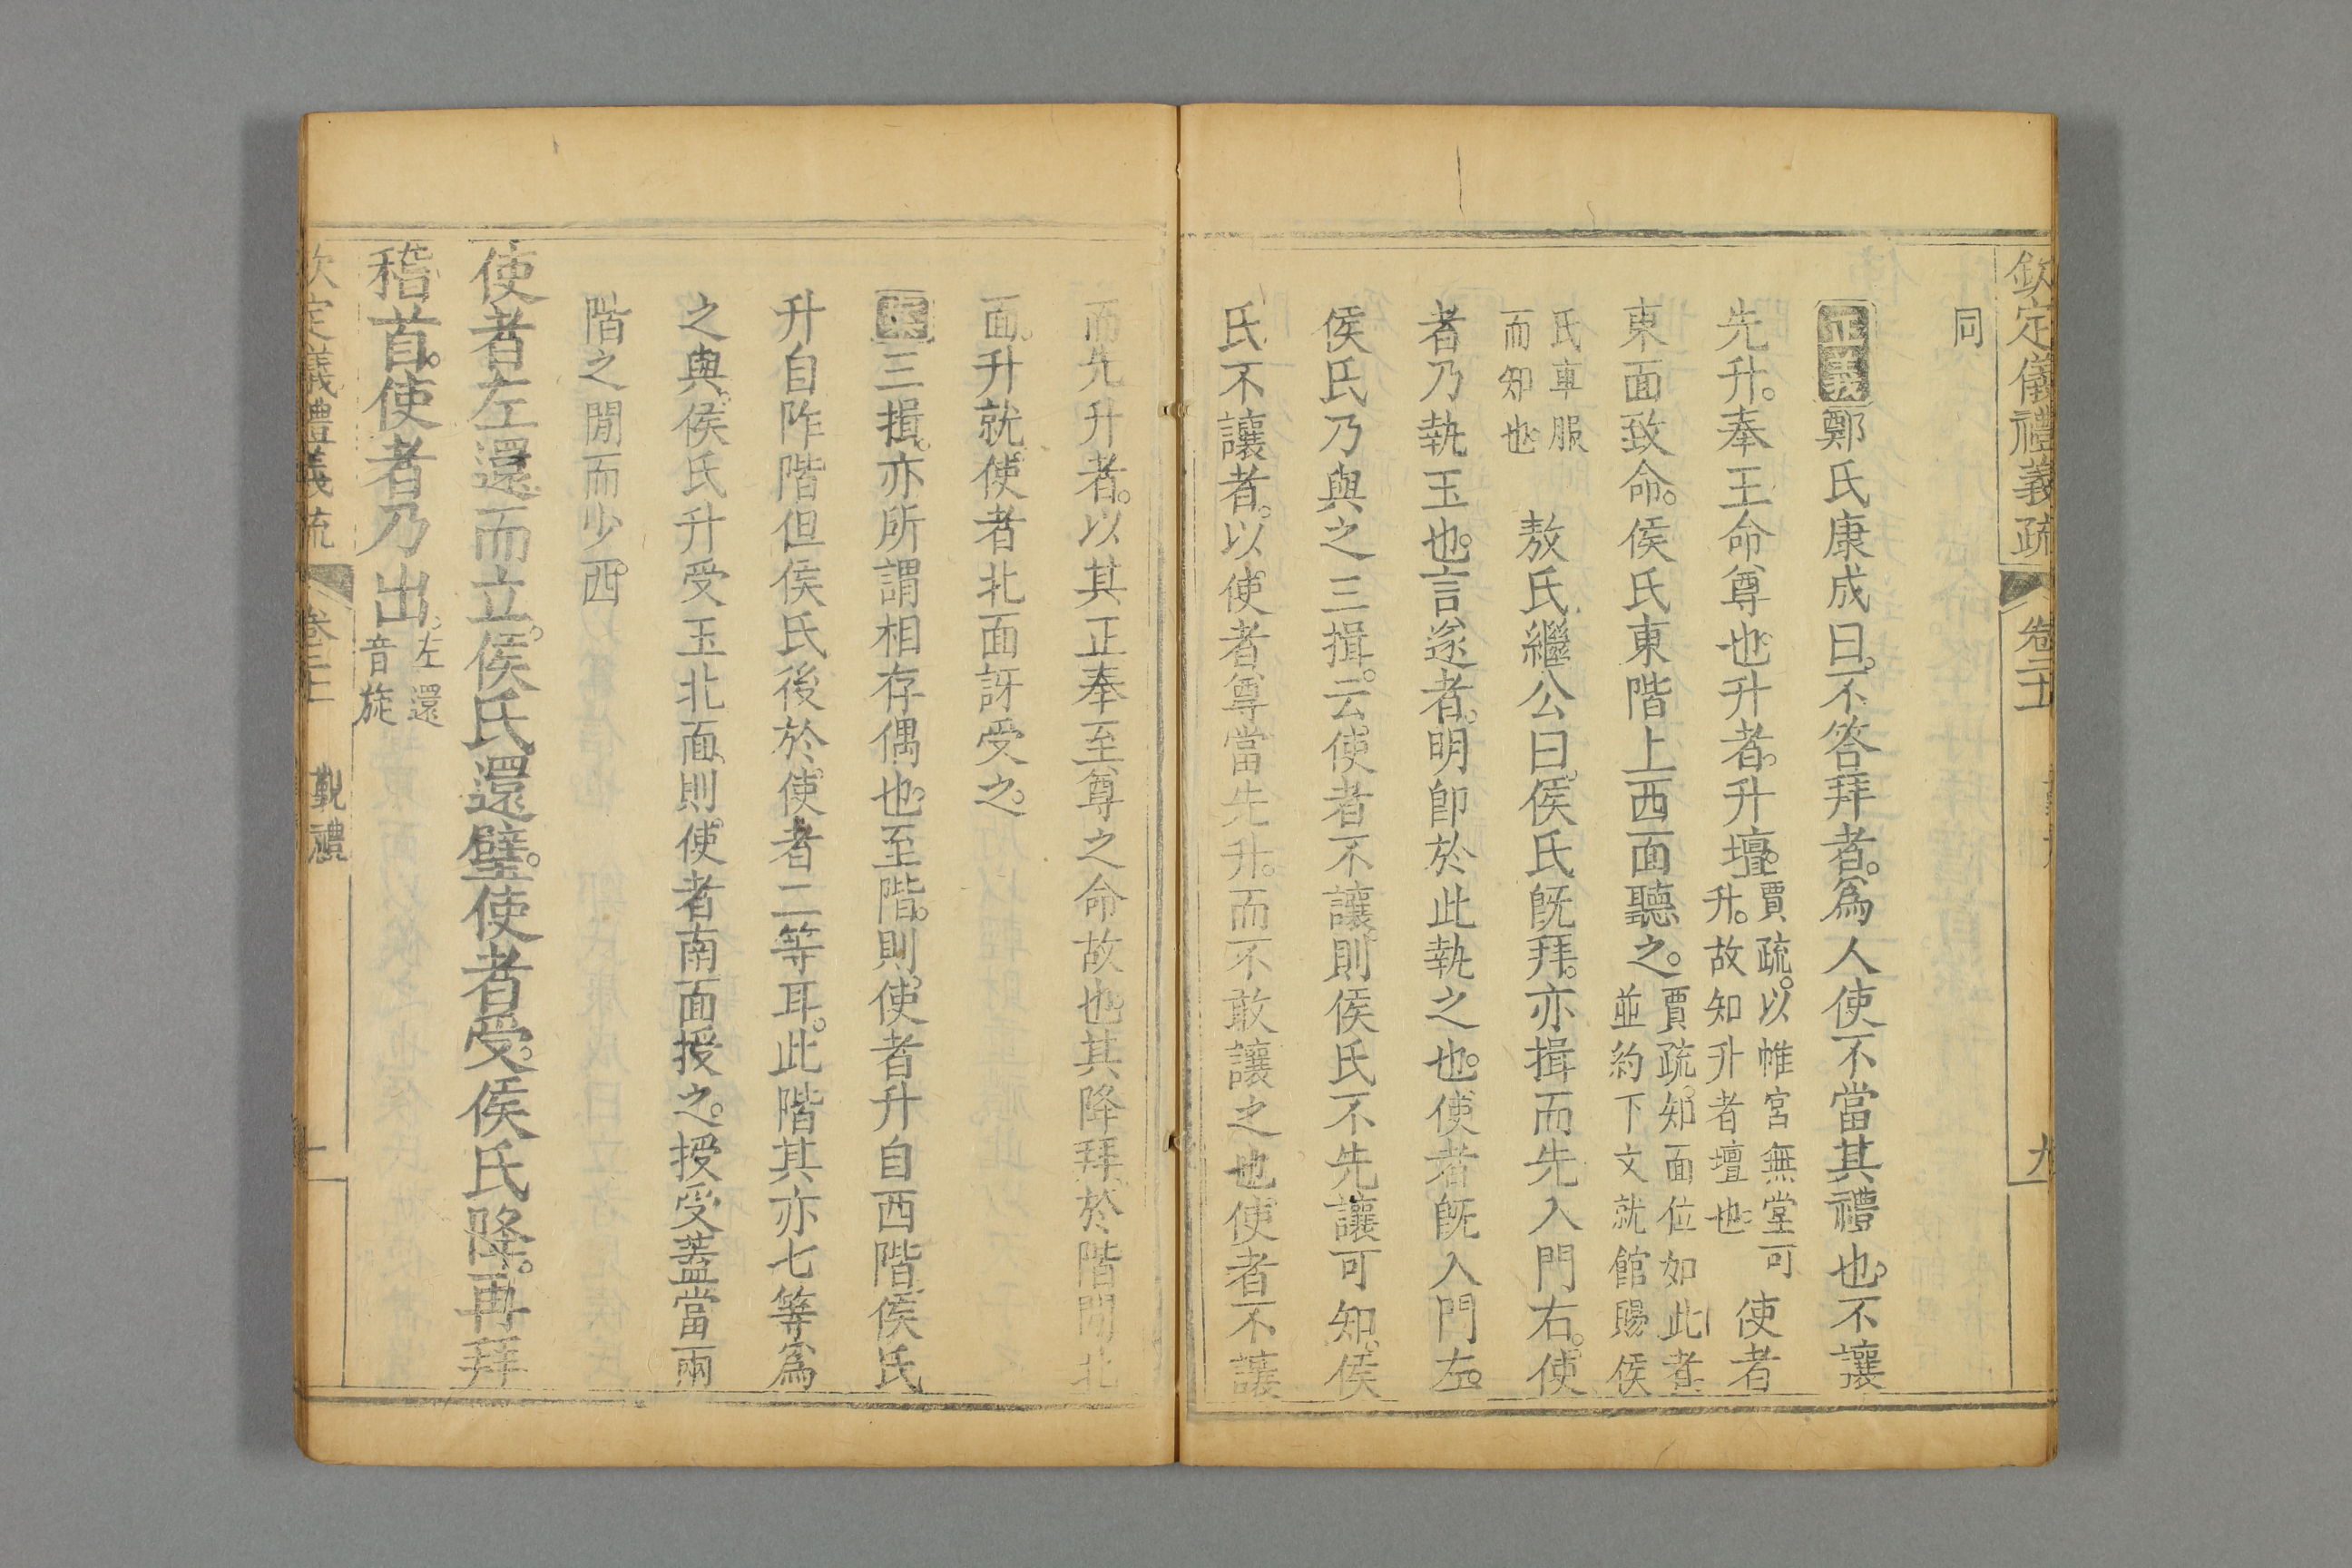 欽定儀禮義疏 卷二十 九
同
正義鄭氏康成曰。不答拜者。為人使不當其禮也。不讓
先升。奉王命尊也。升者。升壇。賈疏。以帷宮無堂可升。故知升者壇也 使者
東面致命。侯氏東階上西面聽之。賈疏。知面位如此者。並約下文就館賜侯
氏車服而知也 敖氏繼公曰。侯氏旣拜。亦揖而先入門右。使
者乃執玉也。言遂者。明卽於此執之也。使者旣入門左。
侯氏乃與之三揖。云使者不讓則侯氏不先讓可知。侯
氏不讓者。以使者尊當先升。而不敢讓之也。使者不讓
而先升者。以其正奉至尊之命故也。其降拜於階閒北
面。升就使者北面訝受之。
三揖。亦所謂相存偶也。至階。則使者升自西階。侯氏
升自阼階但侯氏後於使者二等耳。此階其亦七等為
之與。侯氏升受玉北面、則使者南面授之。授受蓋當兩
階之閒而少西。
使者左還而立。侯氏還璧。使者受。侯氏降。再拜
稽首。使者乃出。左還音旋
欽定儀禮義疏 覲禮